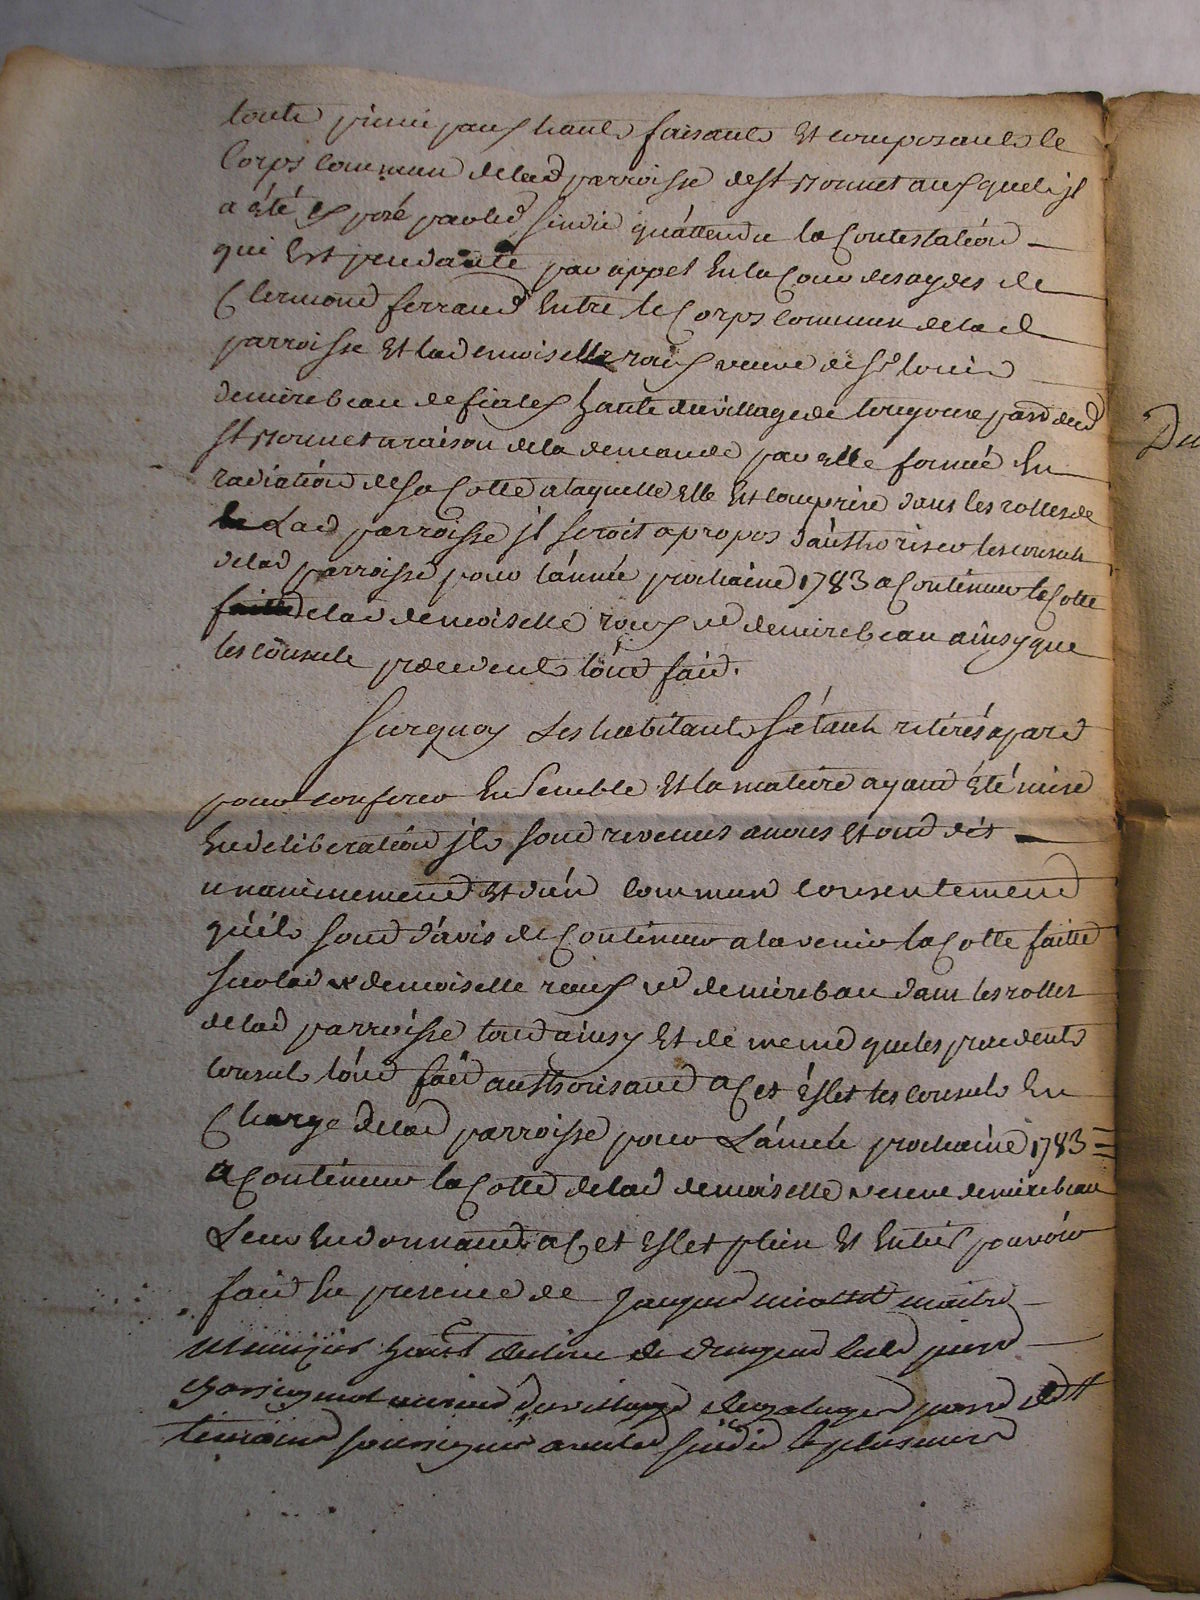 touts principaux habitants faisants Et composants le
Corps commun delad parroisse de st Monnet auxquels jl
a été Exposé par led sindic qu'attendu la Contestation
qui Est pendante par appel En la Cour des aydes de
Clermond ferrand Entre le Corps commun de lad
parroisse Et la demoiselle roux veuve de sr louis
demirebeau de hante du village de par dud
st Monnet a raison de la demande par Elle formée En
radiation de sa Cotte a laquelle Elle Est comprise dans les rolles de
Lad parroisse jl seroit a propos d'authoriser les consuls
delad parroisse pour l'année prochaine 1783 a Continuer la Cotte
delad demoiselle roux ve demirebeau ainsy que
les consuls precedents l'ont fait.
surquoy Les habitants s'étant retirés apard
pour conferer Ensemble Et la matiere ayand été mise
En deliberation jls sond revenus a nous Et ond dit
unanimement Et d'un commun consentement
qu'ils sond d'avis de Continuer a lavenir la Cotte faitte
sur lad demoiselle roux ve demirebeau dans les rolles
delad parroisse toud ainsy Et de meme que les precedents
consuls l'ond fait authorisand a Cet Effet les consuls En
Charge delad parroisse pour L'année prochaine 1783 =
a Continuer la Cotte delad demoiselle veuve demirebeau
Leur En donnand a Cet Effet plein Et Entier pouvoir
faid En presence de jacques maitre
du lieu de pierre
du village de par dud st
temoins soussignés avec led sindic Et plusieurs